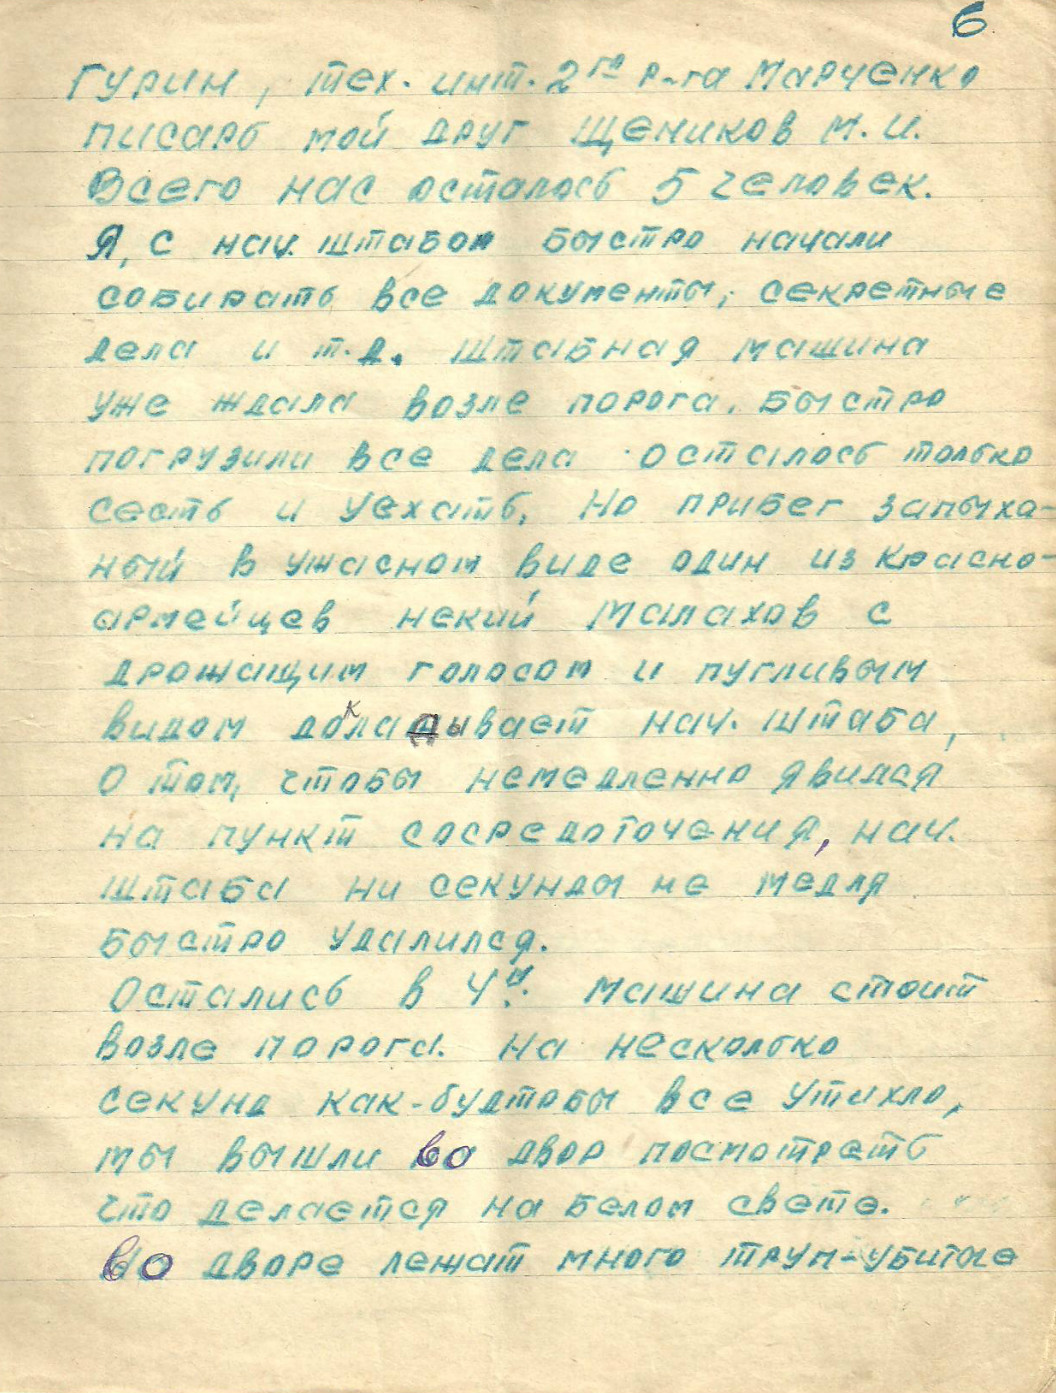 6
Гурин, тех. инт. 2го р-га Марченко
писарь мой друг Щеников М.И.
Всего нас осталось 5 человек.
Я, с нач. штабом быстро начали
собирать все документы, секретные
дела и т.д. штабная машина
уже ждала возле порога. Быстро
погрузили все дела осталось только
сесть и уехать. Но прибег запыха-
ный в ужасном виде один из красно-
армейцев некий Малахов с
дрожащим голосом и пугливым
видом докладывает нач. штаба,
о том, чтобы немедленно явился
на пункт сосредоточения, нач.
штаба ни секунды не медля
быстро удалился.
Остались в 4м. Машина стоит
возле порога. На несколько
секунд как-будтобы все утихло,
мы вышли во двор посмотреть
что делается на белом свете.
Во дворе лежат много труп-убитые